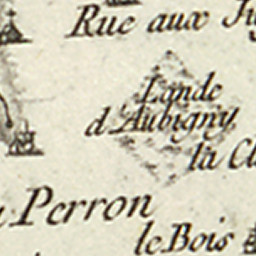 Rue aux
Lande
d'Aubigny
la
Perron
le Bois